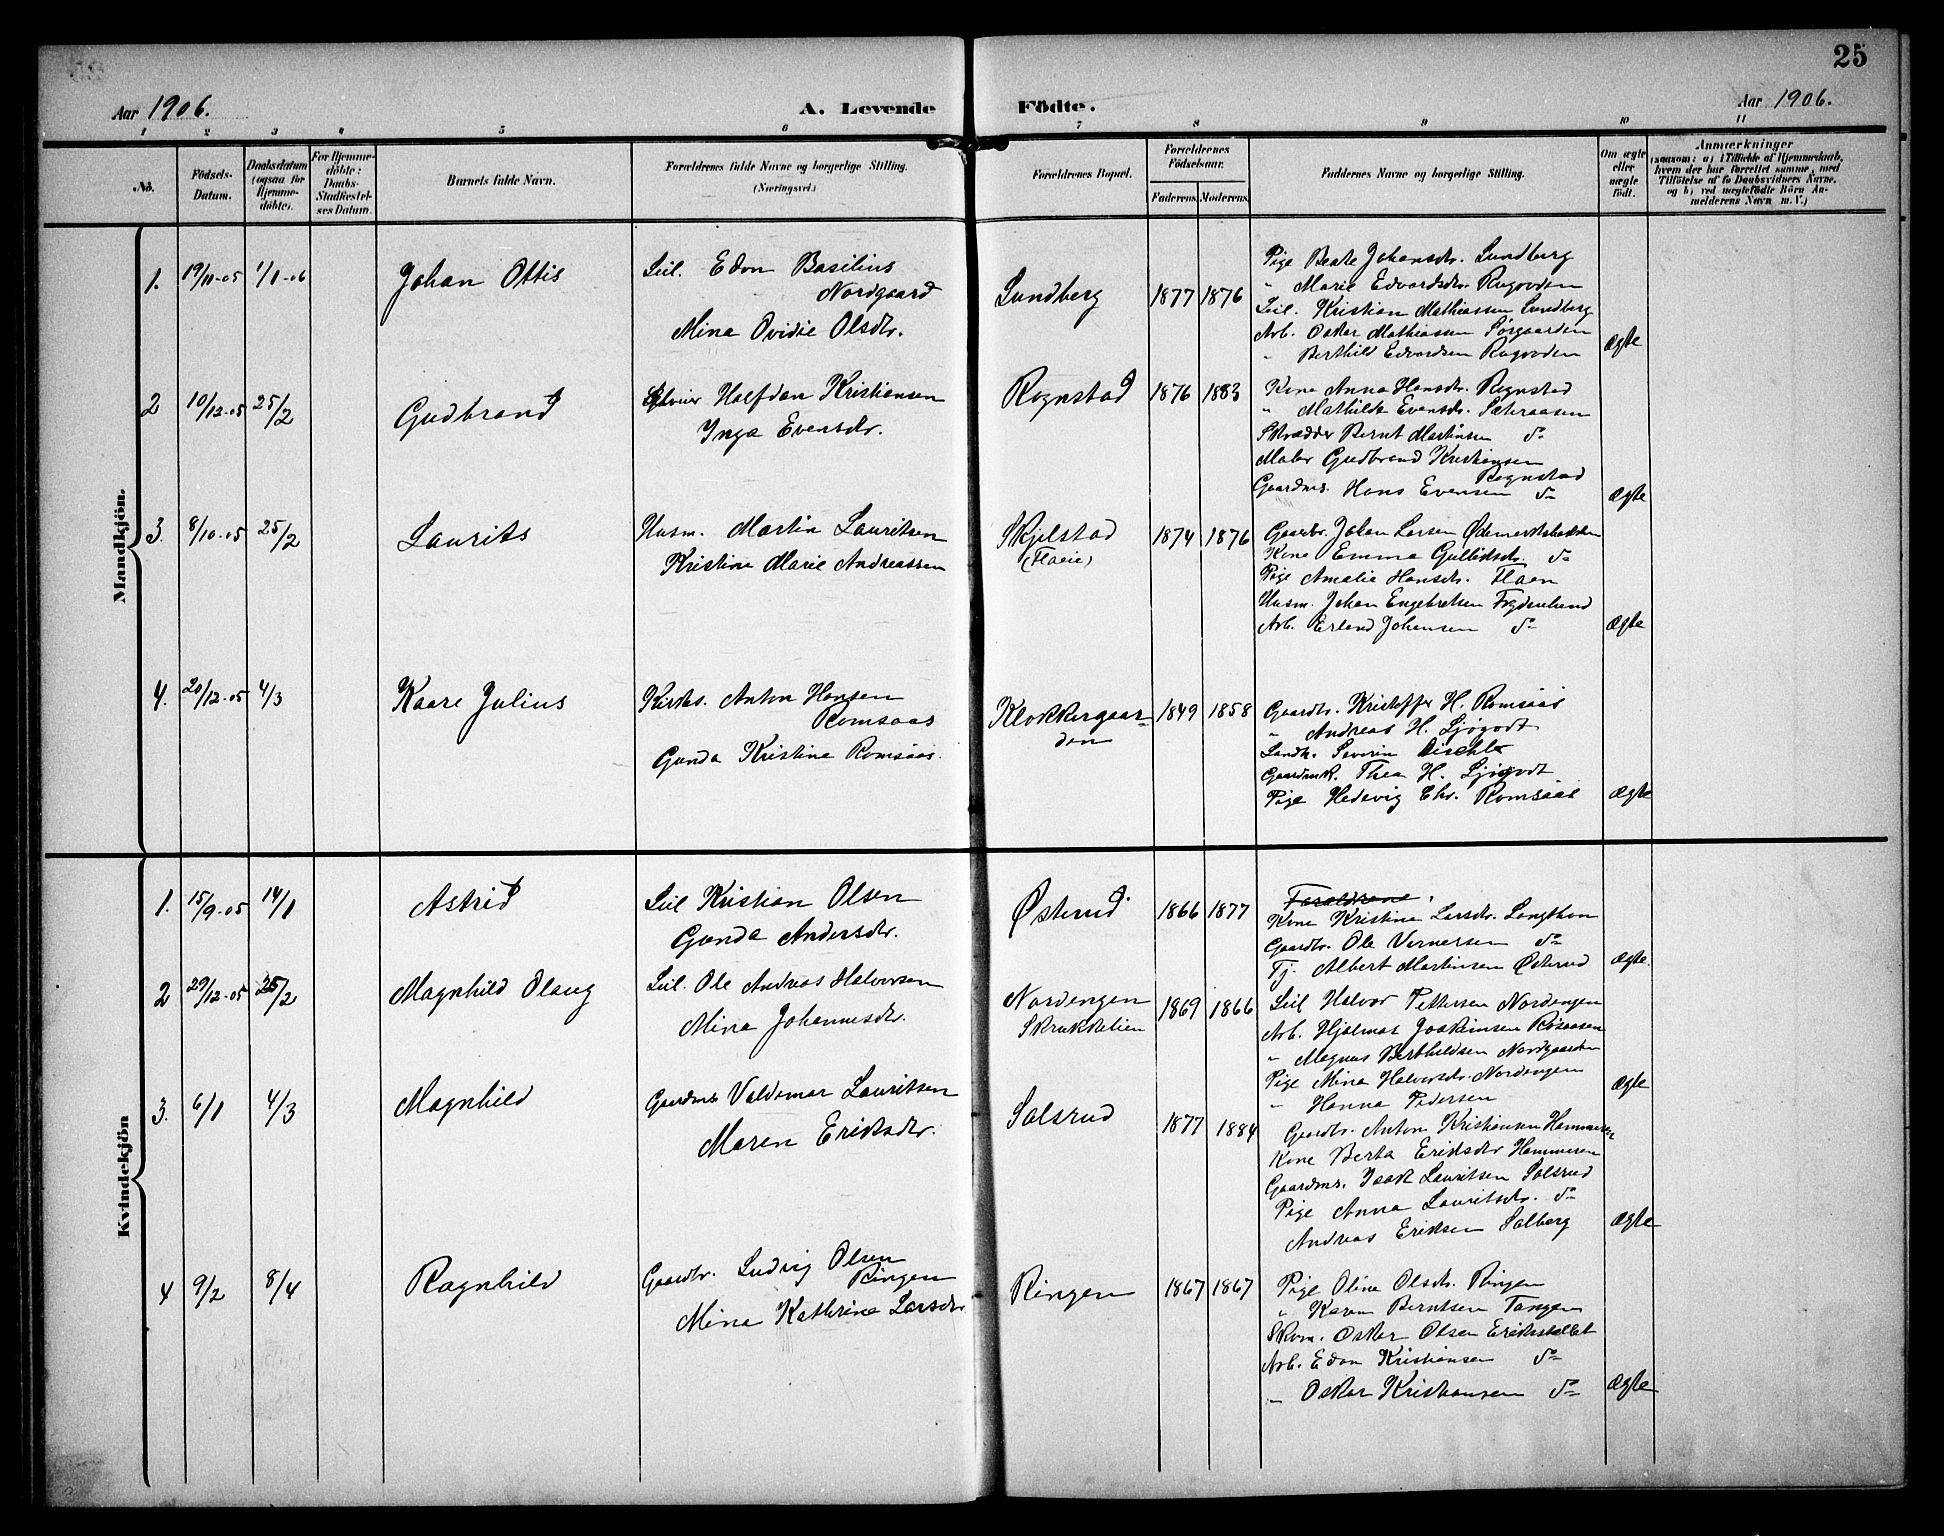 25
Aar 1906.
A. Levende Födte.
Aar 1906.
1 2 3 4 5 6 7 8 9 10 11
No.
Födsels-Datum.
Daabsdatum (ogsaa for Hjemme-döbte).
For Hjemme-döbte: Daabs-Stadfæstel-ses Datum.
Barnets fulde Navn.
Forældrenes fulde Navne og borgerlige Stilling. (Næringsvei.)
Forældrenes Bopæl.
Forældrenes Födselsaar.
Faderens. Moderens.
Faddernes Navne og borgerlige Stilling.
Om ægte eller uægte födt.
Anmærkninger
(saasom: a) i Tilfælde af Hjemmedaab,
hvem der har forrettet samme, med
Tilföielse af to Daabsvidners Navne,
og b) ved uægtefödte Börn An-
melderens Navn m. V.)
Mandkjön.
1. 19/11-05 1/1-06 Johan Ottis
Leil. Edon Basilius
Nordgaard
Mina Ovidie Olsdtr.
Lundberg 1877 1876
Pige Beate Johansdr. Lundberg
" Marie Edvardsdr. Rugvoden
Leil. Kristian Mathiassen Lundberg
Arb. Oskar Mathiassen Sørgaarden
" Berthild Edvardsen Rugvoden
Ægte
2 10/12-05 25/2 Gudbrand
Halfdan Kristiansen
Inga Evensdr.
Rognstad 1876 1883
Kone Anna Hansdr. Rognstad
" Mathilde Evensdr. Sæteraasen
Skrædder Bernt Martinsen do
Maler Gudbrand Kristiansen
Rognstad
Gaardms. Hans Evensen do
Ægte
3. 8/10-05 25/2 Laurits
Husm. Martin Lauritsen
Kristine Marie Andreassen
Skjelstad
(Flaeie)
1874 1876
Gaardbr. Johan Larsen
Kone Emma Gulliksdr. do
Pige Amalie Hansdr. Flaen
Husm. Johan Engebretsen Frydenlund
Arb. Erland Johansen do
Ægte
4. 20/12-05 4/3 Kaare Julius
Kirkes. Anton Hansen
Romsaas
Gunda Kristine Romsaas.
Klokkergaar-
den
1849 1858
Gaardbr. Kristoffer H. Romsaas
" Andreas H. Ljøgodt
Landh. Severin
Gaardmk. Thea H. Ljøgodt
Pige Hedevig Chr. Romsaas
Ægte
Kvindekjön
1. 15/9-05 14/1 Astrid
Leil Kristian Olsen
Gunda Andersdr.
Østerud 1866 1877
Forældrene.
Kone Kristine Larsdr. Langthon
Gaardbr. Ole Vernersen do
Tj. Albert Martinsen Østerud
Ægte.
2 29/12-05 25/2 Magnhild Olaug
Leil. Ole Andreas Halvorsen
Mina Johannesdr.
Nordengen
Skrukkelien
1869 1866
Leil Halvor Pettersen Nordengen
Arb. Hjalmar Joakimsen Røsaasen
" Magnus Berthildsen Nordgaarden
Pige Mina Halvorsdr. Nordengen
" Hanna Pedersen
Ægte
3. 6/1 4/3 Magnhild
Gaardms Valdemar Lauritsen
Maren Eriksdr.
Solsrud 1877 1884
Gaardbr. Anton Kristiansen Hammeren
Kone Berta Eriksdr Hammeren
Gaardms. Isaak Lauritsen Solsrud
Pige Anna Lauritsdr. do
Andreas Eriksen Solberg
Ægte
4 9/2 8/4 Ragnhild
Gaardbr. Ludvig Olsen
Ringen
Mina Kathrine Larsdr
Ringen 1867 1867
Pige Oline Olsdr. Ringen
" Karen Berntsen Tangen
Skom. Oskar Olsen Eriksstallet
Arb. Edon Kristiansen do
" Oskar Kristiansen do
Ægte